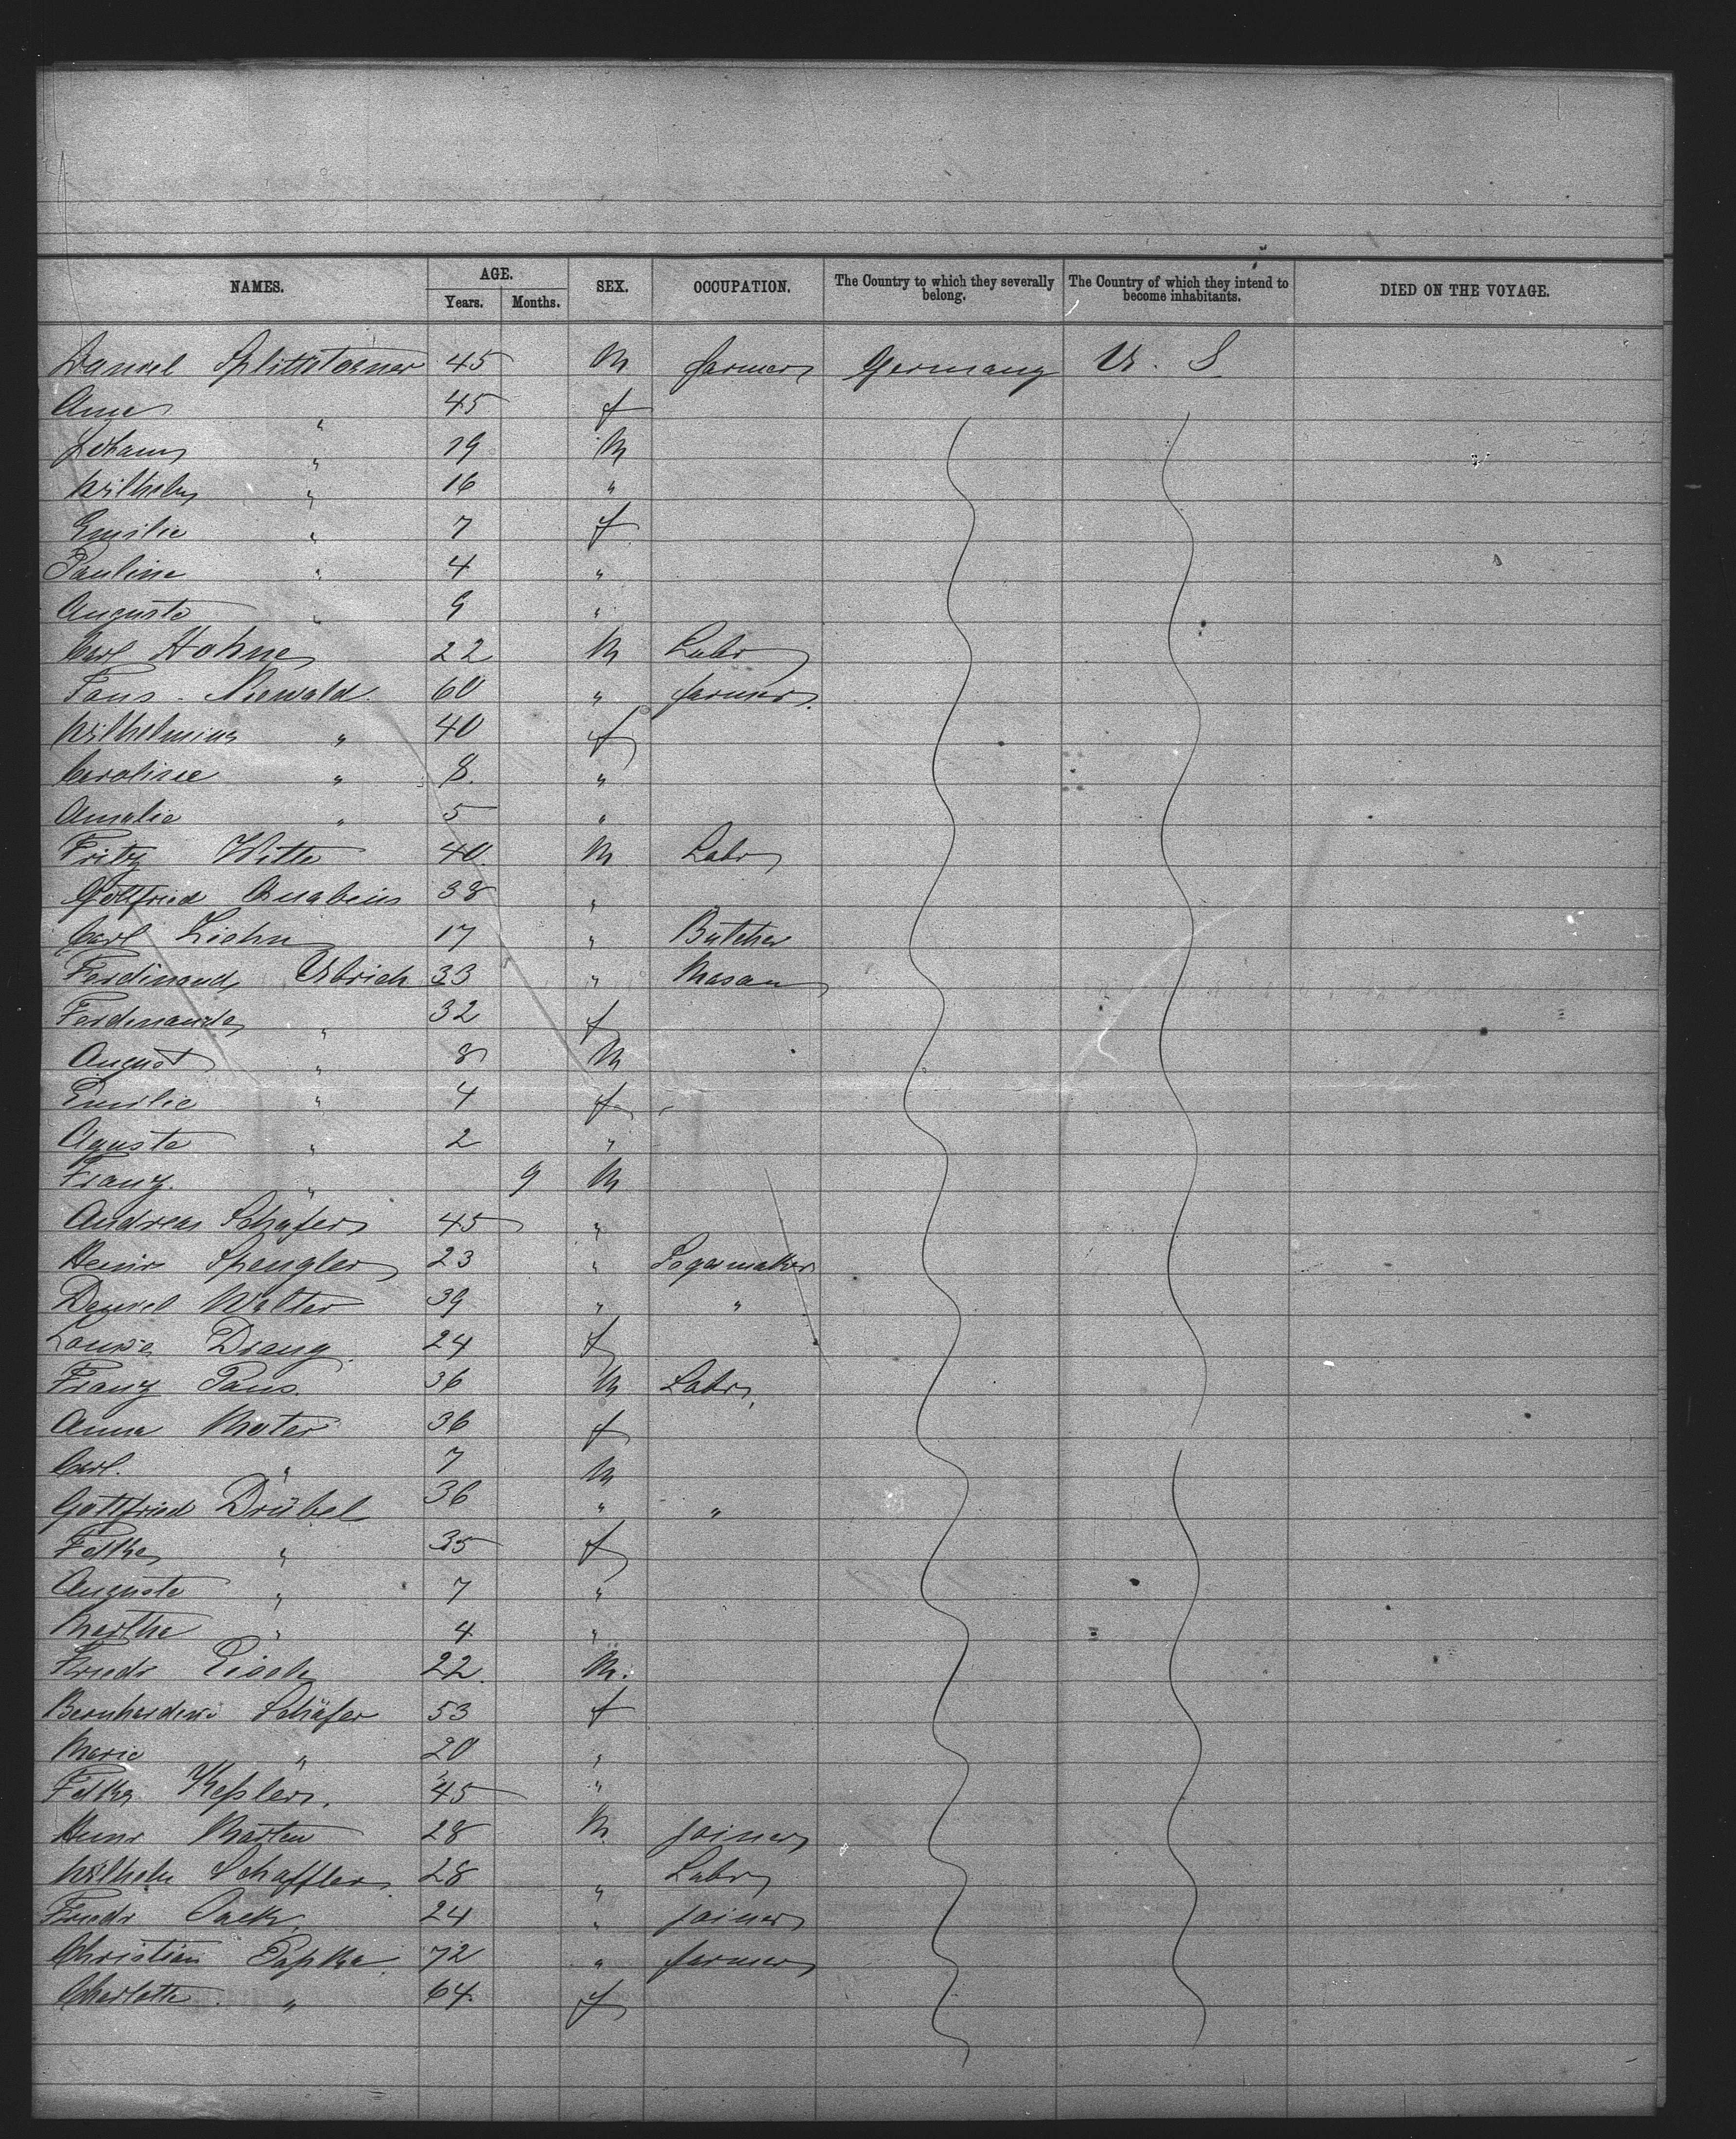 NAMES. AGE. SEX. OCCUPATION. The Country to which they severally belong. The Country of which they intend to become inhabitants. DIED ON THE VOYAGE.
Years. Months.
Daniel 45 M farmer Germany U. S
Anne " 45 f
Johann " 19 M
Wilhelm " 16 "
Emilie " 7 f
Pauline " 4 "
Auguste " 9 "
Carl Hohne 22 M Labr
Niewald 60 " farmer
Wilhelmina " 40 f
Caroline " 8 "
Amalie " 5 "
Fritz Witte 40 M Labr
Gottfried 38 "
Carl Liehn 17 " Butcher
Ferdinand Ulrich 33 " Mason
Ferdinande " 32 f
August " 8 M
Emilie " 4 f
Aguste " 2 "
Franz " 9 M
Andreas Schafer 45 "
Heinr Spengler 23 " Segarmaker
Daniel Walter 39 " "
Louise Drang 24 f
Franz Paus 36 M Labr
Anna Moter 36 f
Carl " 7 M
Gottfried Drübel 36 " "
" 35 f
Auguste " 7 "
Martha " 4 "
Friedr 22 M.
Bernhardine Schäfer 53 f
Marie " 20 "
Keßler 45 "
Heinr Marten 28 M joiner
Wilhelm Schaffler 28 " Labr
Friedr 24 " joiner
Christian Papke 72 " farmer
Charlotte " 64 f